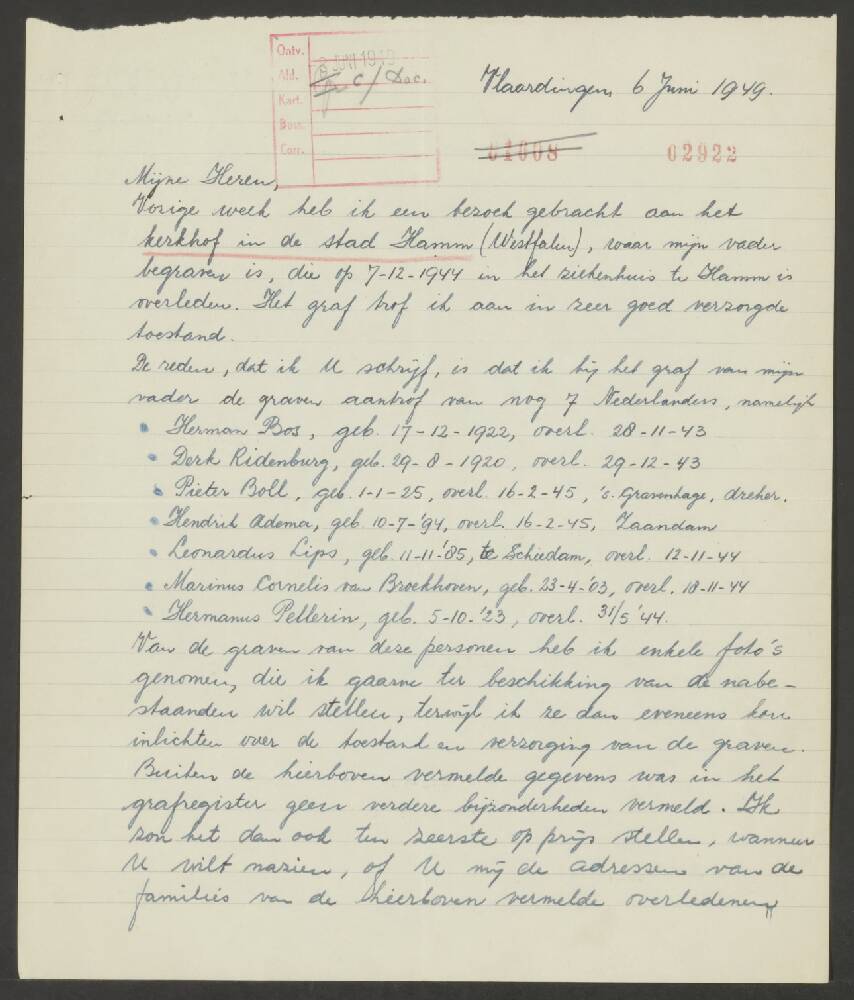 Ontv.
8 JUNI 1949
Afd.
c/Doc.
Kart.
Bew.
Corr.
Vlaardingen, 6 Juni 1949.
01008
02922
Mijne Heren,
Vorige week heb ik een bezoek gebracht aan het
kerkhof in de stad Hamm (Westfalen), waar mijn vader
begraven is, die op 7-12-1944 in het ziekenhuis te Hamm is
overleden. Het graf trof ik aan in zeer goed verzorgde
toestand.
De reden, dat ik U schrijf, is dat ik bij het graf van mijn
vader de graven aantrof van nog 7 Nederlanders, namelijk
Herman Bos, geb. 17-12-1922, overl. 28-11-43
Derk Ridenburg, geb. 29-8-1920, overl. 29-12-43
Pieter Boll, geb. 1-1-25, overl. 16-2-45, 's. Gravenhage, dreher.
Hendrik Adema, geb 10-7-'94, overl. 16-2-45, Zaandam
Leonardus Lips, geb. 11-11-'85, te Schiedam, overl. 12-11-44
Marinus Cornelis van Broekhoven, geb. 23-4-'03, overl. 18-11-44
Hermanus Pellerin, geb. 5-10-'23, overl. 31/5 '44.
Van de graven van deze personen heb ik enkele foto's
genomen, die ik gaarne ter beschikking van de nabe-
staanden wil stellen, terwijl ik ze dan eveneens kan
inlichten over de toestand en verzorging van de graven.
Buiten de hierboven vermelde gegevens was in het
grafregister geen verdere bijzonderheden vermeld. Ik
zou het dan ook ten zeerste op prijs stellen, wanneer
U wilt nazien, of U mij de adressen van de
families van de hierboven vermelde overledenen